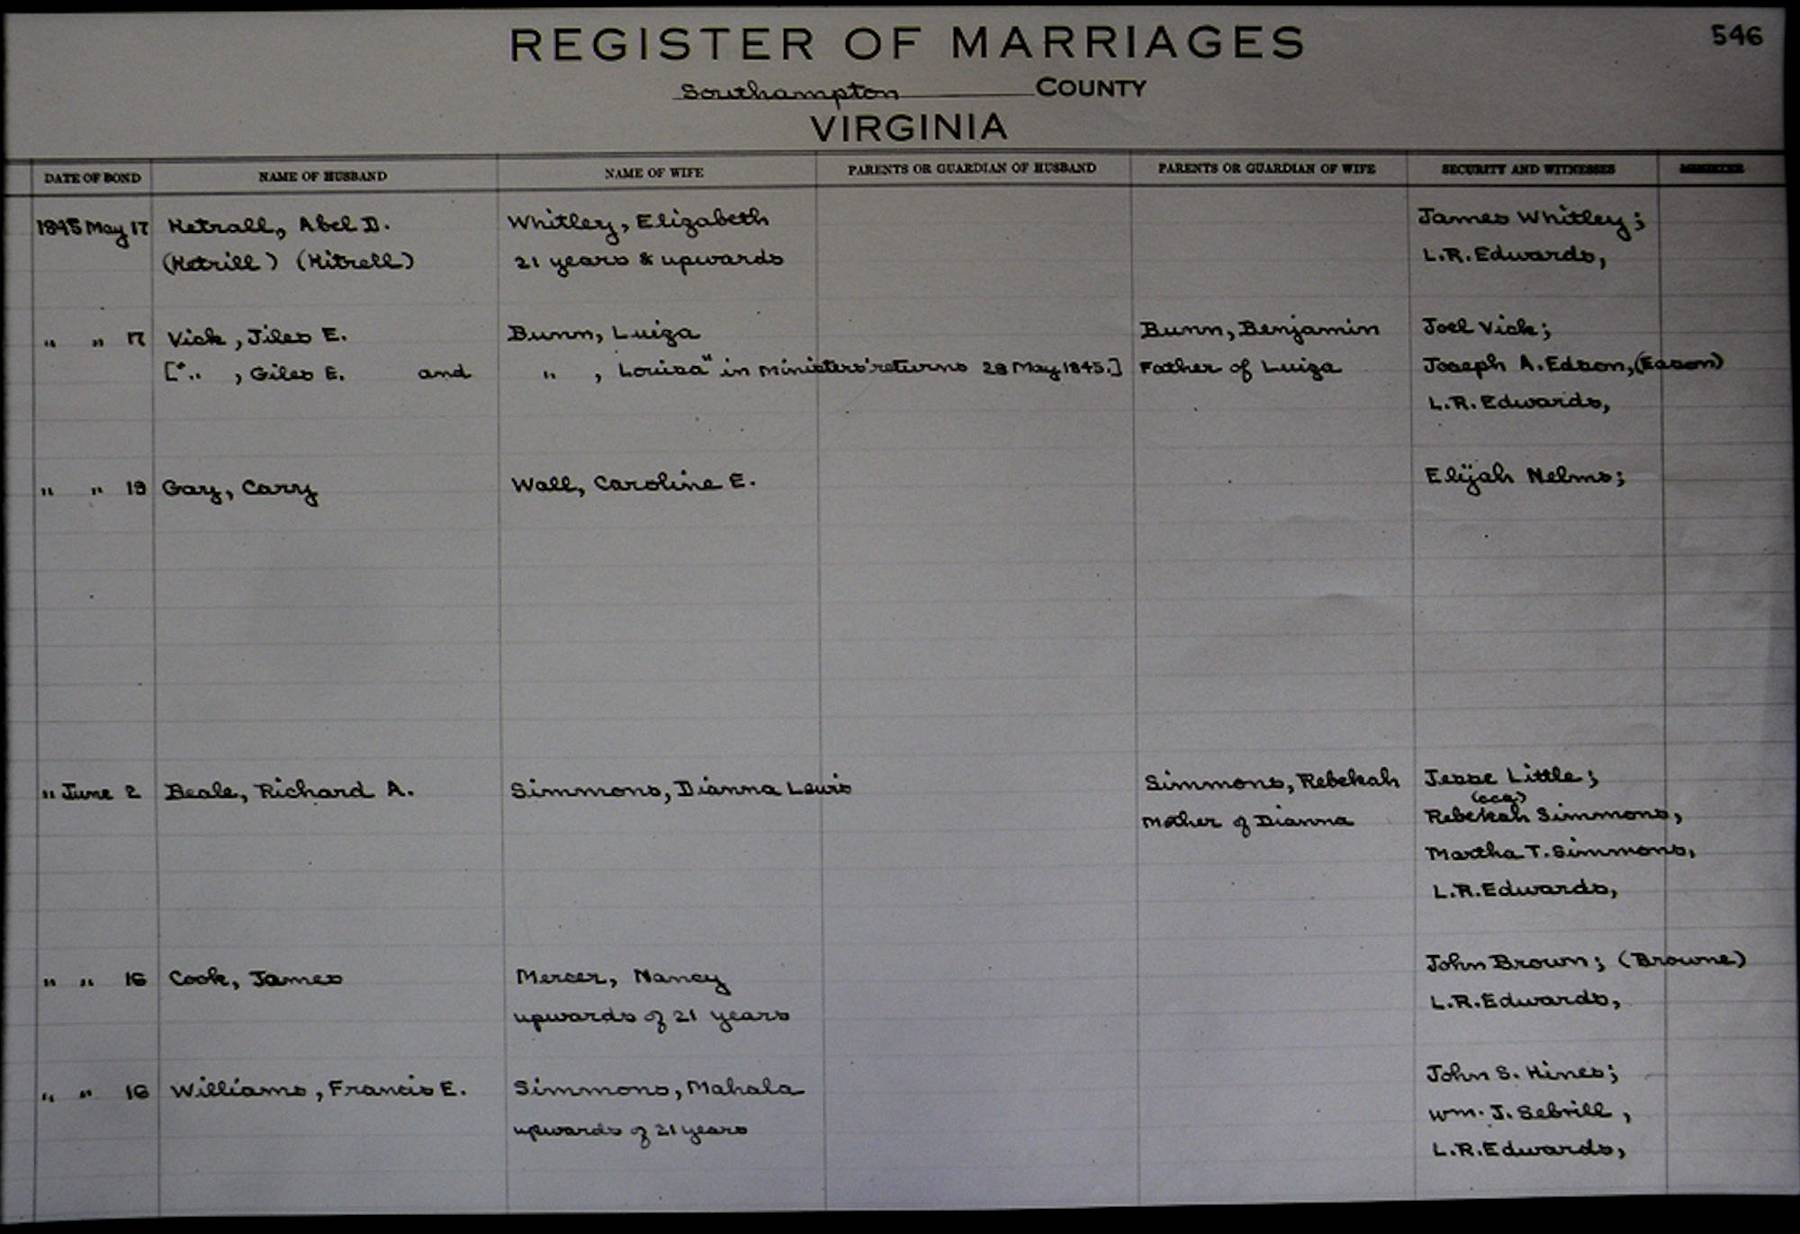 546
REGISTER OF MARRIAGES
Southampton COUNTY
VIRGINIA
DATE OF BOND NAME OF HUSBAND NAME OF WIFE PARENTS OR GUARDIAN OF HUSBAND PARENTS OR GUARDIAN OF WIFE SECURITY AND WITNESSES MINISTER
1845 May 17 Ketrall, Abel D. Whitley, Elizabeth James Whitley;
(Ketrill) (Kitrell) 21 years & upwards L.R. Edwards,
" " 17 Vick, Jiles E. Bunn, Luiza Bunn, Benjamin Joel Vick;
[" " , Giles E. and " , Louisa" in Ministers' returns 28 May 1845.] Father of Luiza Joseph A. Edson, (Eason)
L.R. Edwards,
" " 19 Gary, Carry Wall, Caroline E. Elijah Nelms;
" June 2 Beale, Richard A. Simmons, Dianna Lewis Simmons, Rebekah Jesse Little;
(cca)
Mother of Dianna Rebekah Simmons,
Martha T. Simmons,
L.R. Edwards,
" " 16 Cook, James Mercer, Nancy John Brown; (Browne)
upwards of 21 years L.R. Edwards,
" " 16 Williams, Francis E. Simmons, Mahala John S. Hines;
upwards of 21 years Wm. J. Sebrill,
L.R. Edwards,